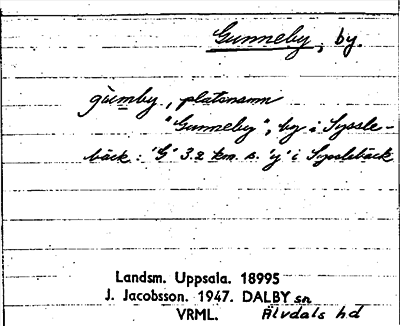 Gunneby, by.
gùmby, platsnamn
"Gunneby", by i Syssle-
bäck: 'G' 3.2 km s. 'y' i Sysslebäck
Landsm. Uppsala. 18995
J. Jacobsson. 1947. DALBY sn
VRML. Älvdals hd